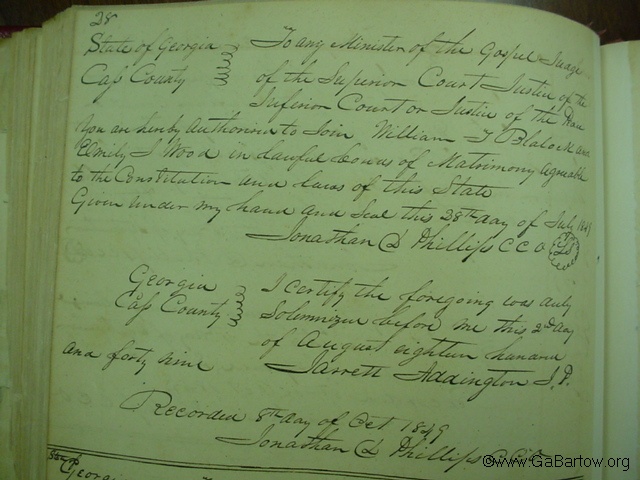 28
State of Georgia To any Minister of the Gospel Judge
Cass County of the Superior Court Justice of the
Inferior Court or Justice of the Peace
You are hereby authorised to Join William T Blalock and
Emily J Wood in Lawful bonds of Matrimony agreeable
to the Constitution and laws of this State
Given under my hand and Seal this 28th day of July 1849
Jonathan L Phillips C C O LS
Georgia I certify the foregoing was duly
Cass County Solemnized before me this 2nd day
of August eighteen hundred
and forty nine Jarrett Addington J.P.
Recorded 8th day of Oct 1849
Jonathan L Phillips C C O
State of
Georgia
©www.GaBartow.org